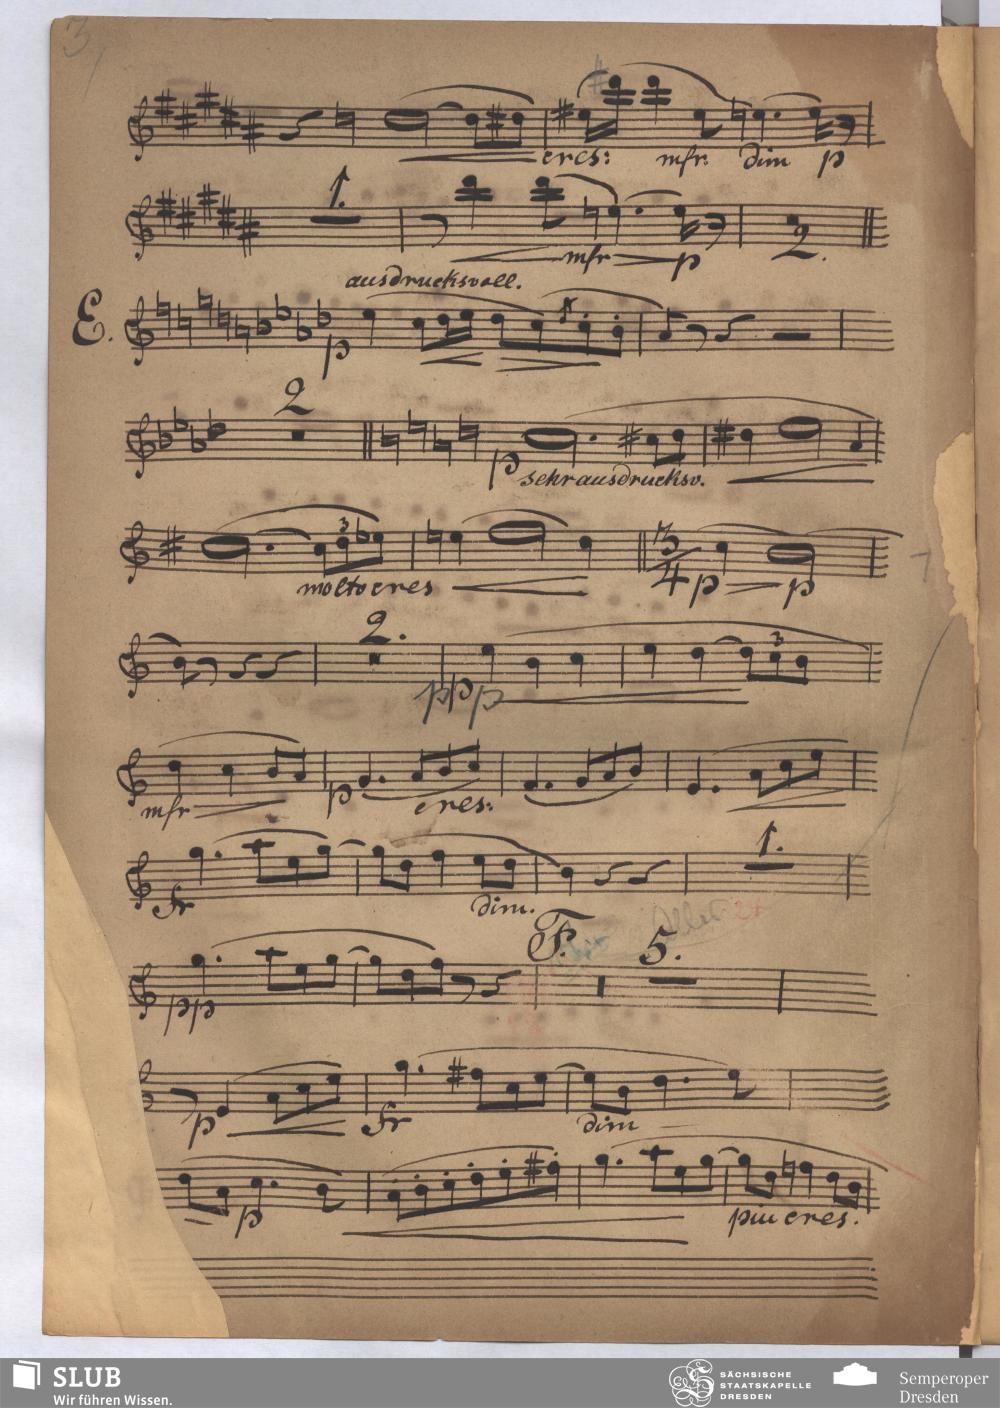 3,
cres: mfr. dim p
1.
mfr p
2.
ausdrucksvoll.
E.
p
2
p sehr ausdrucksv.
3
molto cres
3/4 p p
2.
3
ppp
mfr p cres:
fr dim.
1.
F.
5.
pp
p fr dim
p piu cres.
SLUB
Wir führen Wissen.
SÄCHSISCHE
STAATSKAPELLE
DRESDEN
Semperoper
Dresden